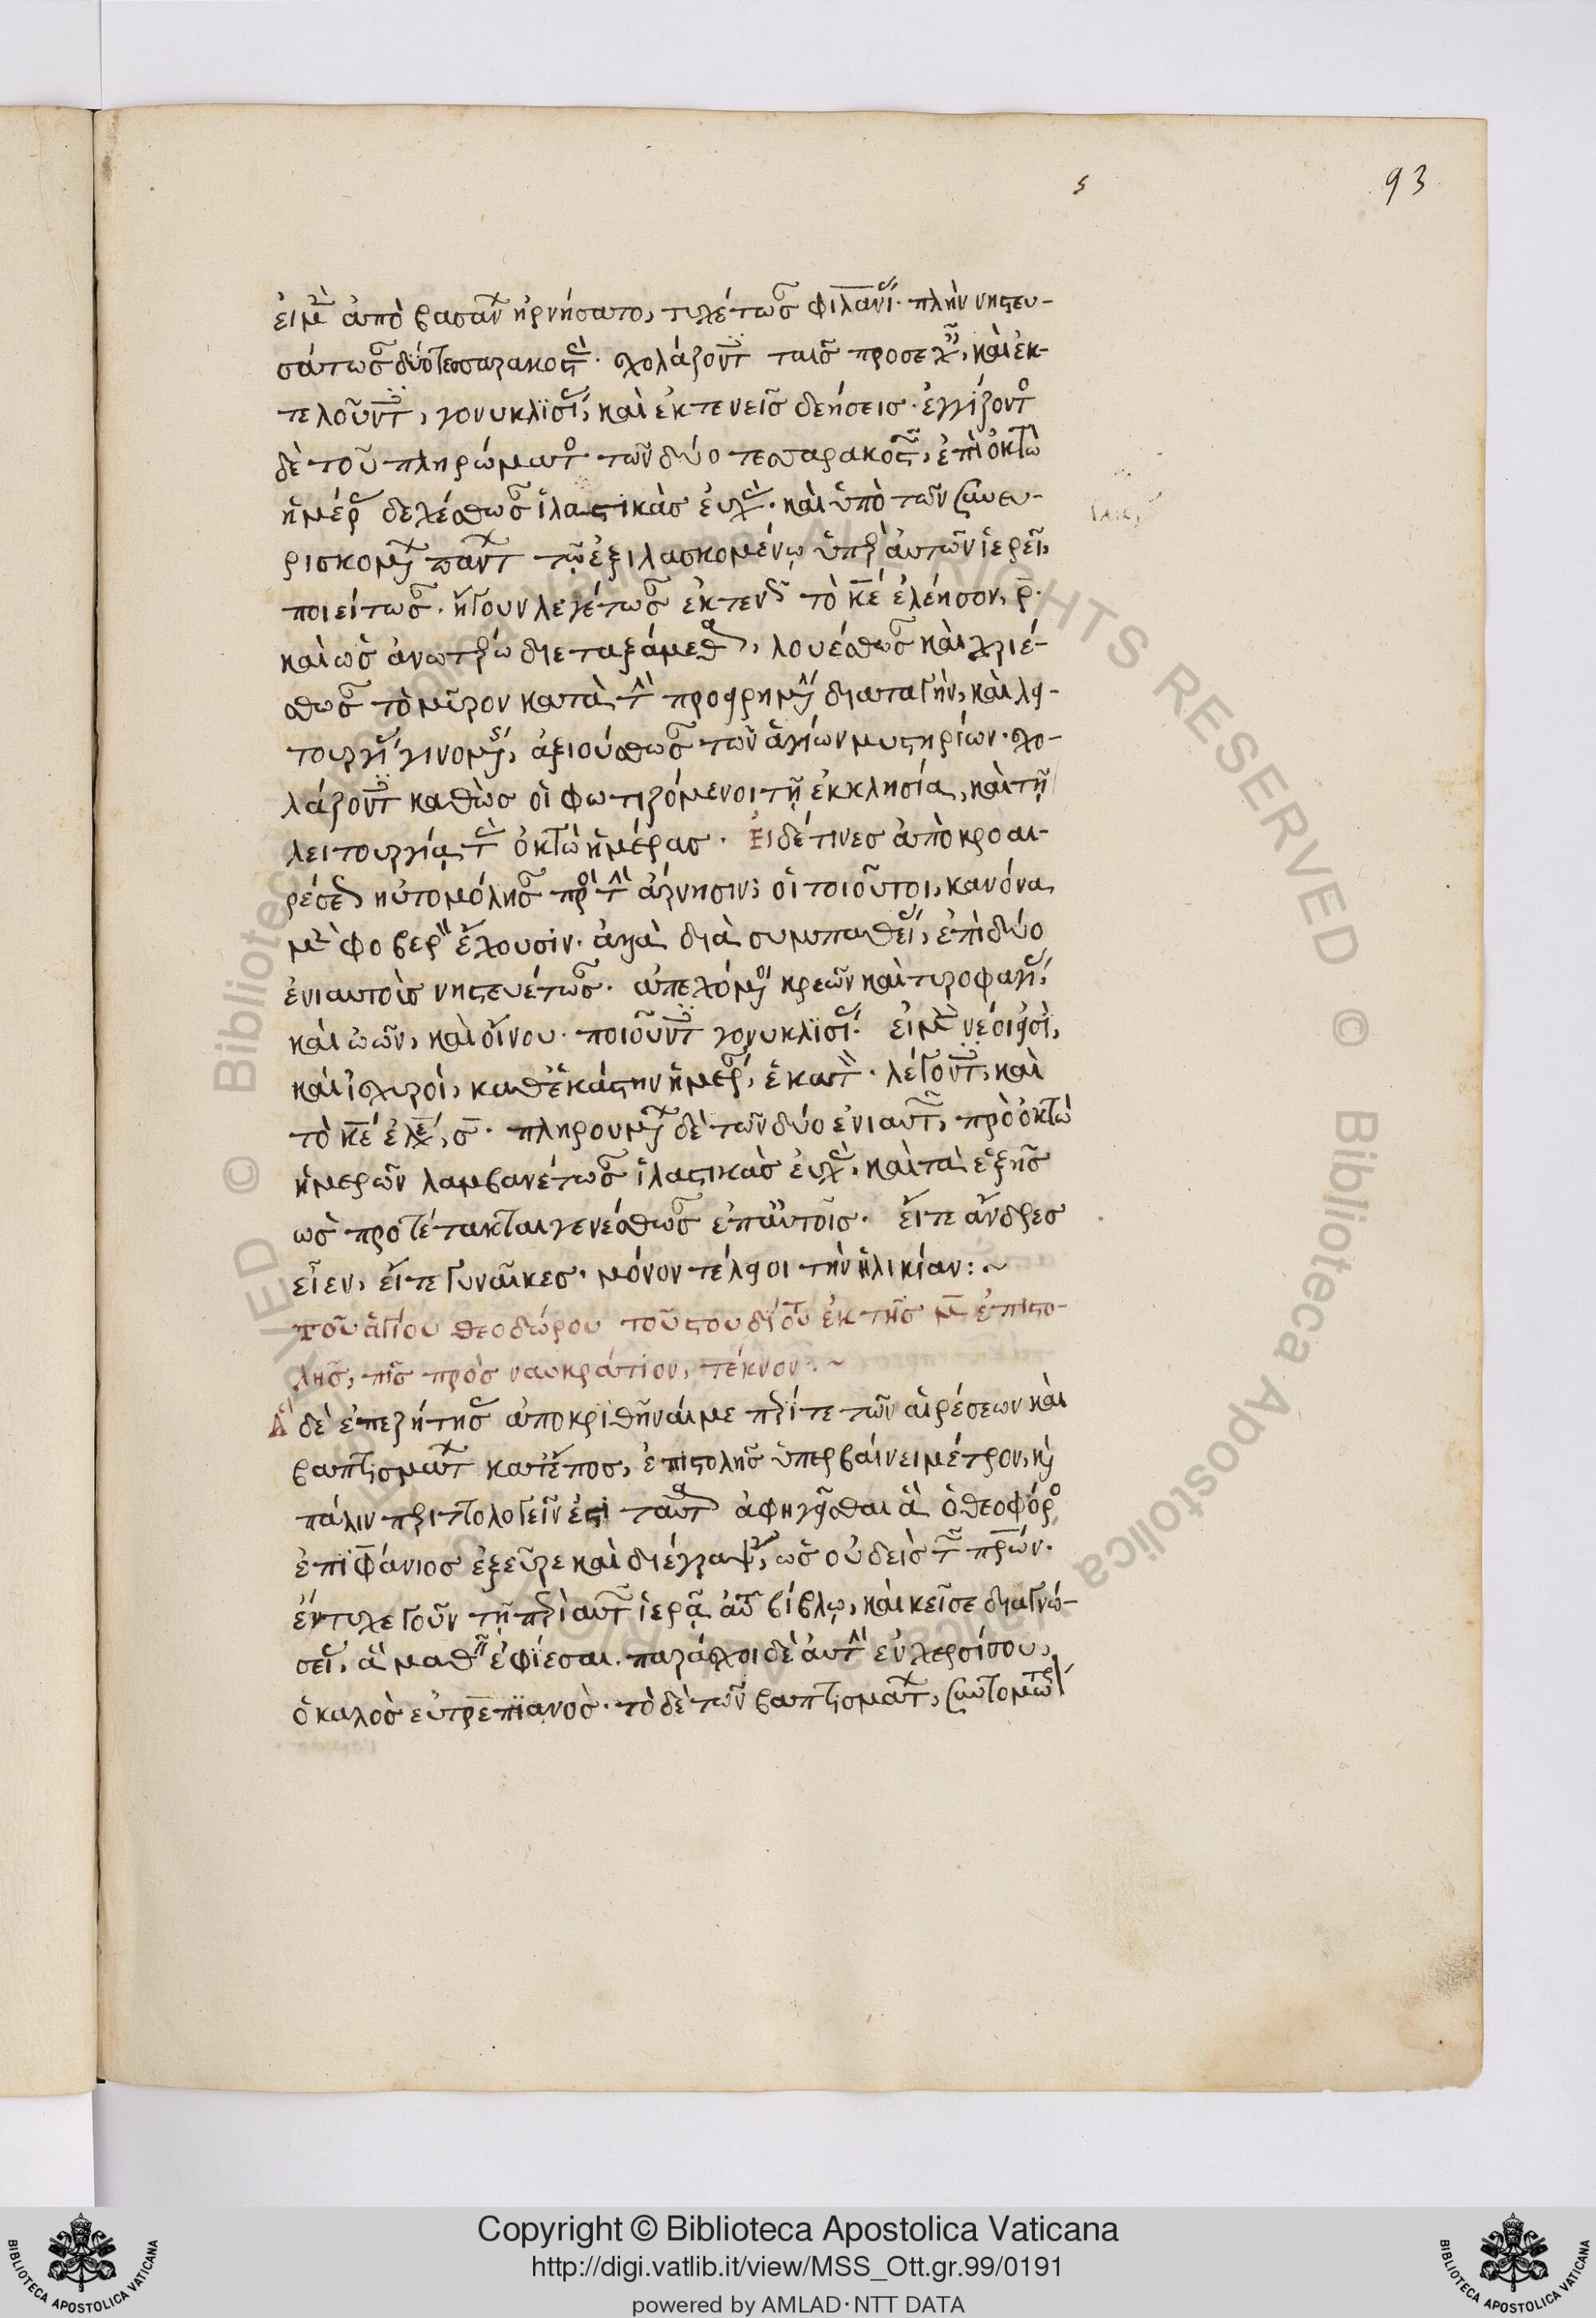 93
εἰ μὲν ἀπὸ βασάνων ἠρνήσατο, τυχέτωσαν φιλανίας. πλὴν νηστευ-
σάτωσαν δύο τεσσαρακοστὰς. σχολάζοντες ταῖς προσευχαῖς, καὶ ἐκ-
τελοῦντες, γονυκλισίας, καὶ ἐκτενεῖς δεήσεις. ἐγγίζοντος
δὲ τοῦ πληρώματος τῶν δύο τεσσαρακοστῶν, ἐπὶ ὀκτὼ
ἡμέρας δεχέσθωσαν ἱλαστικὰς εὐχὰς. καὶ ὑπὸ τῶν συνευ-
ρισκομένων πάντων τῷ ἐξιλασκομένῳ ὑπὲρ αὐτῶν ἱερεῖ,
ποιείτωσαν. ἤγουν λεγέτωσαν ἐκτενῶς τὸ κε ἐλέησον, ρ.
καὶ ὡς ἀνωτέρω διεταξάμεθα, λουέσθωσαν καὶ χριέ-
σθωσαν τὸ μῦρον κατὰ τὴν προειρημένην διαταγὴν, καὶ λει-
τουργίας γινομένης, ἀξιούσθωσαν τῶν ἁγίων μυστηρίων. σχο-
λάζοντες καθὼς οἱ φωτιζόμενοι τῇ ἐκκλησίᾳ, καὶ τῇ
λειτουργίᾳ τὰς ὀκτὼ ἡμέρας. Εἰ δέ τινες ἀπὸ προαι-
ρέσεως ηὐτομόλησαν πρὸς τὴν ἄρνησιν, οἱ τοιοῦτοι, κανόνα
μὲν φοβερὸν ἔχουσιν. ἀλλὰ διὰ συμπαθείας, ἐπὶ δύο
ἐνιαυτοὺς νηστευέτωσαν. ἀπεχόμενοι κρεῶν καὶ τυροφαγίας,
καὶ ὠῶν, καὶ οἴνου. ποιοῦντες γονυκλισίας. εἰ μὲν νέοι εἰσὶ,
καὶ ἰσχυροί, καθ' ἑκάστην ἡμέραν, ἑκατὸν. λέγοντες, καὶ
τὸ κε ἐλέησον, σ. πληρουμένων δὲ τῶν δύο ἐνιαυτῶν, πρὸ ὀκτὼ
ἡμερῶν λαμβανέτωσαν ἱλαστικὰς εὐχὰς, καὶ τὰ ἑξῆς
ὡς προτέτακται γενέσθωσαν ἐπ' αὐτοῖς. εἴτε ἄνδρες
εἶεν, εἴτε γυναῖκες. μόνον τέλειοι τὴν ἡλικίαν:~
τοῦ ἁγίου θεοδώρου τοῦ στουδίου ἐκ τῆς μ ἐπιστο-
λῆς, τῆς πρὸς ναυκράτιον, τέκνον:~
δὲ ἐπεζήτησας ἀποκριθῆναί με περί τε τῶν αἱρέσεων καὶ
βαπτισμάτων κατ' ἔπος, ἐπιστολῆς ὑπερβαίνει μέτρον, καὶ
πάλιν περιττολογεῖν ἐστὶ ταῦτα ἀφηγεῖσθαι ἃ ὁ θεοφόρος
ἐπιφάνιος ἐξεῦρε καὶ διέγραψεν, ὡς οὐδεὶς τῶν πρων.
ἔντυχε γοῦν τῇ περὶ αὐτῶν ἱερᾷ αὐτοῦ βίβλῳ, κἀκεῖσε διαγνώ-
σεις, ἃ μαθεῖν ἐφίεσαι. παράσχοι δὲ αὐτὴν ἐν χερσί σου,
ὁ καλὸς εὐπρεπιανὸς. τὸ δὲ τῶν βαπτισμάτων, συντομώτερον